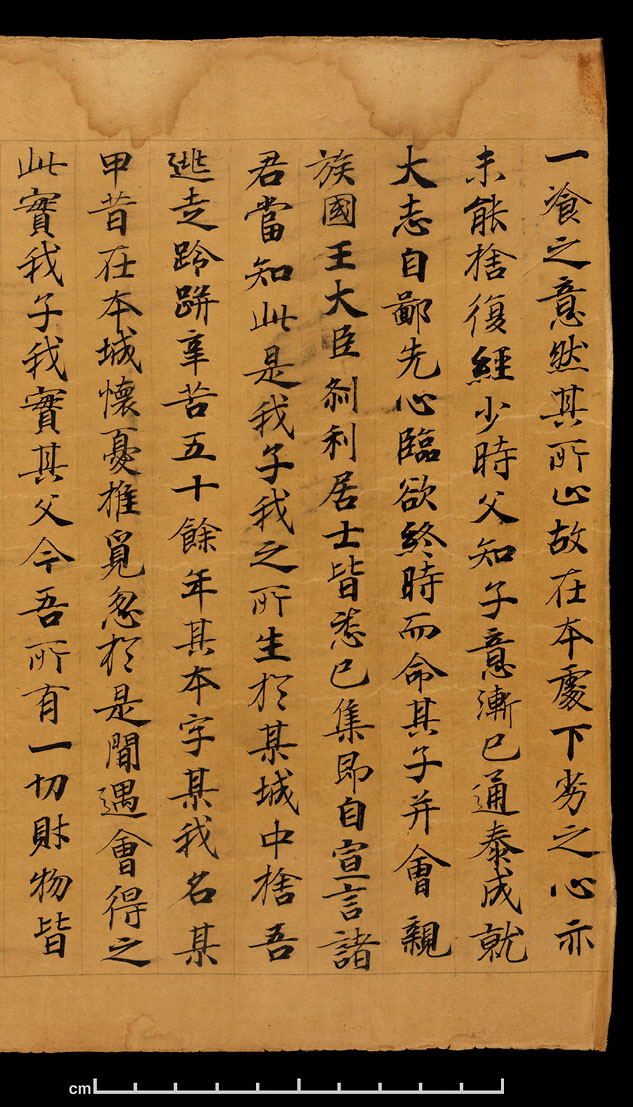 一飡之意然其所止故在本處下劣之心亦
未能捨復經少時父知子意漸已通泰成就
大志自鄙先心臨欲終時而命其子并會親
族國王大臣剎利居士皆悉已集即自宣言諸
君當知此是我子我之所生於某城中捨吾
逃走跉跰辛苦五十餘年其本字某我名某
甲昔在本城懷憂推覓忽於是間遇會得之
此實我子我實其父今吾所有一切財物皆
cm